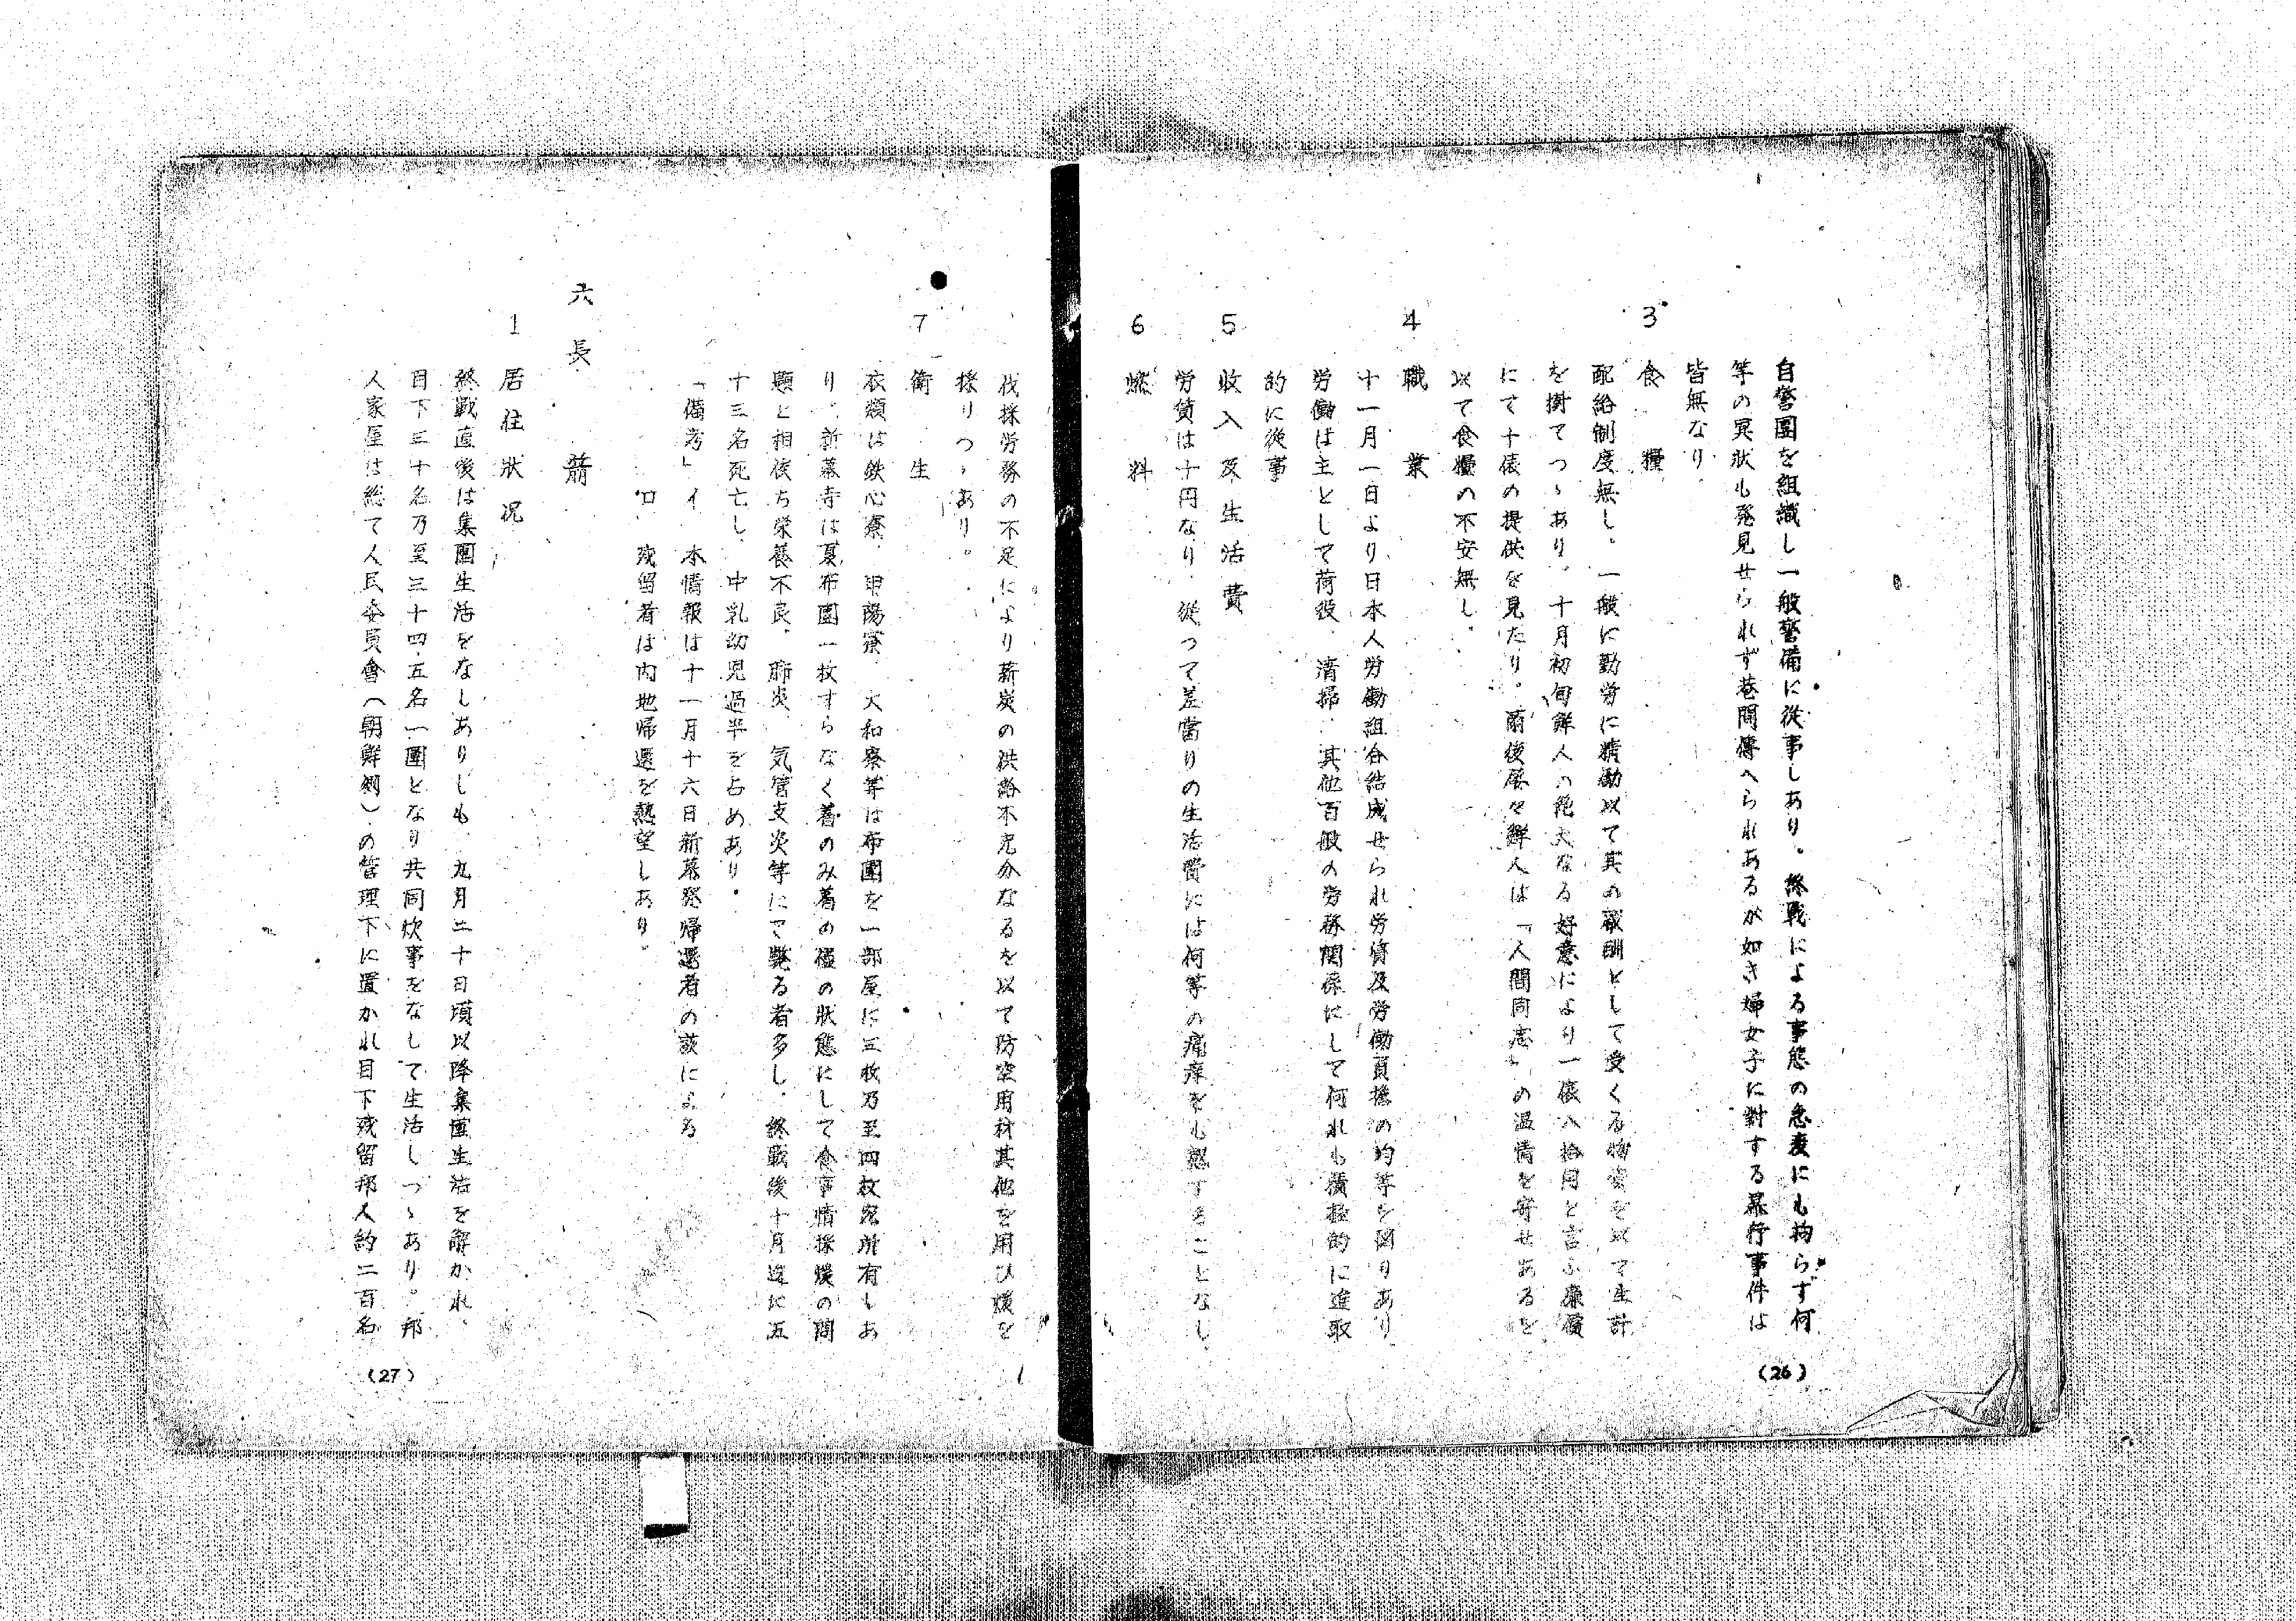 自警團を組織し一般警備に従事しあり。終戰による事態の急変にも拘らず何
等の異狀も発見せられず巷間傳へられあるが如き婦女子に対する暴行事件は
皆無なり
3 食糧
配給制度無し。一般に勤労に精勤以て其の報酬として受くる物資を以て生計
を樹てつゝあり。十月初旬鮮人の絶大なる好意により一俵八拾円と言ふ廉價
にて十俵の提供を見たり。爾後屡々鮮人は「人間同志」の温情を寄せあるを
以て食糧の不安無し。
4 職業
十一月一日より日本人労働組合結成せられ労賃及労働負擔の均等を図りあり
労働は主として荷役、清掃、其他百般の労務関係にして何れも積極的に進取
的に従事
5 收入及生活費
労賃は十円なり、従つて差當りの生活費には何等の痛痒をも認することなし、
6 燃料
伐採労務の不足により薪炭の供給不充分なるを以て防空用材其他を用ひ煖を
採りつゝあり。
7 衛生
衣類は鉄心寮、甲陽寮、大和寮等は布團を一部屋に三枚乃至四枚宛所有しあ
り、新幕寺は夏布團一枚すらなく着のみ着の儘の狀態にして食事情採煖の問
題と相俟ち栄養不良、肺炎、気管支炎等にて斃る者多し、終戰後十月迄に五
十三名死亡し、中乳幼児過半を占めあり。
「備考」イ 本情報は十一月十六日新幕発帰還者の談による
ロ 残留者は内地帰還を熱望しあり。
六 長箭
1 居住狀況
終戰直後は集團生活をなしありしも、九月二十日頃以降集團生活を解かれ、
目下三十名乃至三十四、五名一團となり共同炊事をなして生活しつゝあり。邦
人家屋は総て人民委員會（朝鮮側）の管理下に置かれ目下残留邦人約二百名
(26)
(27)